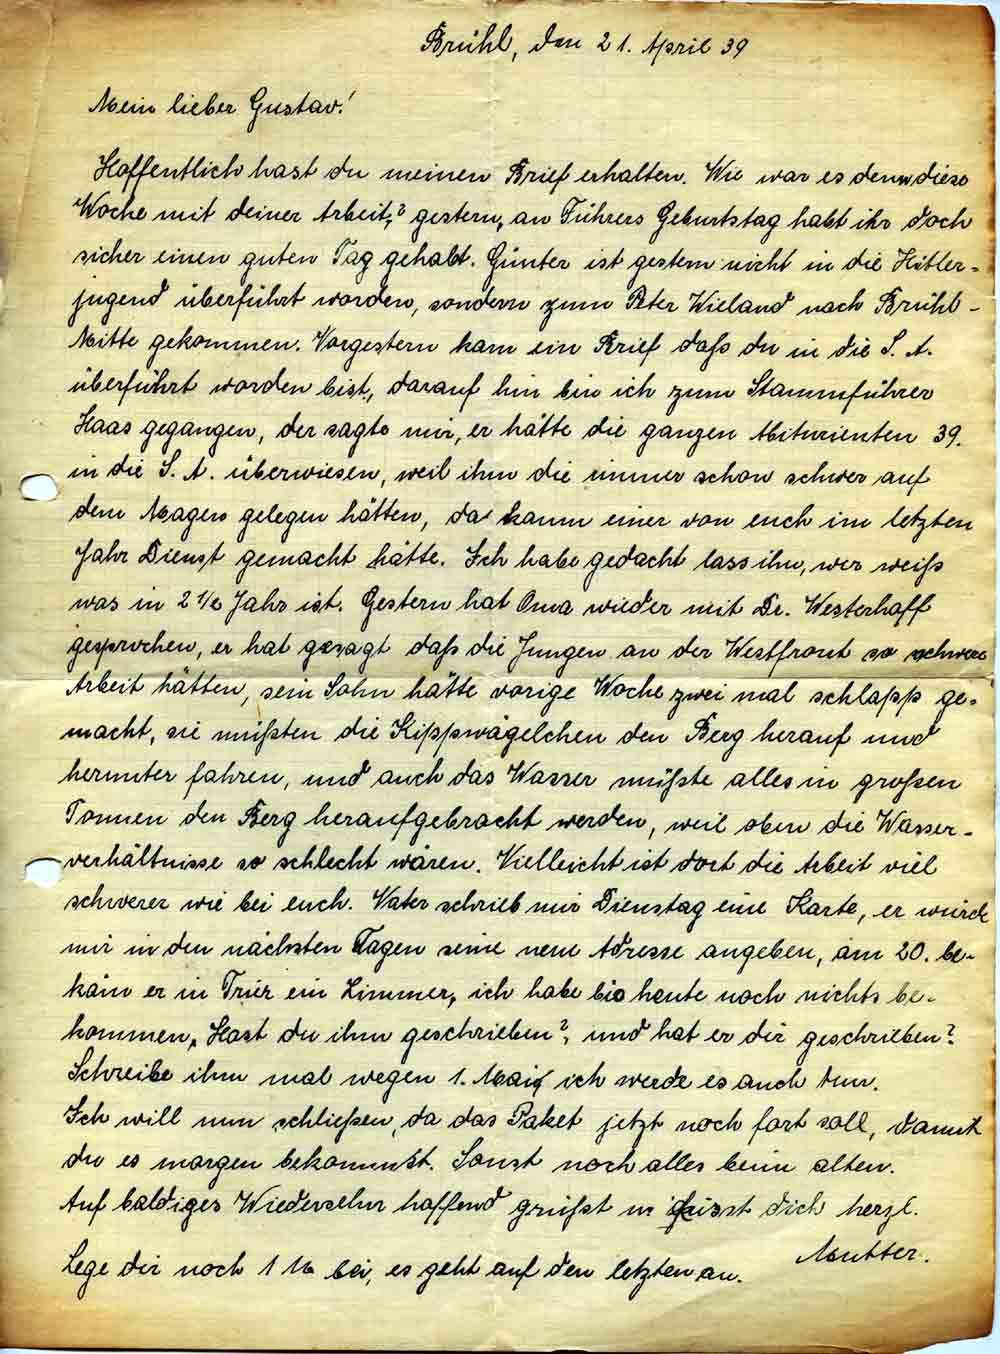 Brühl, den 21. April 39
Mein lieber Gustav!
Hoffentlich hast du meinen Brief erhalten. Wie war es denn diese
Woche mit deiner Arbeit,? gestern, an Führers Geburtstag habt ihr doch
sicher einen guten Tag gehabt. Günter ist gestern nicht in die Hitler-
jugend überführt worden, sondern zum Peter Wieland nach Brühl-
Mitte gekommen. Vorgestern kam ein Brief daß du in die S. A.
überführt worden bist, darauf hin bin ich zum Stammführer
Haas gegangen, der sagte mir, er hätte die ganzen Abiturienten 39.
in die S. A. überwiesen, weil ihm die immer schon schwer auf
dem Magen gelegen hätten, da kaum einer von euch im letzten
Jahr Dienst gemacht hätte. Ich habe gedacht lass ihn, wer weiß
was in 2 1/2 Jahr ist. Gestern hat Oma wieder mit Dr. Westerhoff
gesprochen, er hat gesagt daß die Jungen an der Westfront so schwere
Arbeit hätten, sein Sohn hätte vorige Woche zwei mal schlapp ge-
macht, sie müßten die Kippwägelchen den Berg herauf und
herunter fahren, und auch das Wasser müßte alles in großen
Tonnen den Berg heraufgebracht werden, weil oben die Wasser-
verhältnisse so schlecht wären. Vielleicht ist dort die Arbeit viel
schwerer wie bei euch. Vater schrieb mir Dienstag eine Karte, er würde
mir in den nächsten Tagen seine neue Adresse angeben, am 20. be-
käm er in Trier ein Zimmer, ich habe bis heute noch nichts be-
kommen, Hast du ihm geschrieben?, und hat er dir geschrieben?
Schreibe ihm mal wegen 1. Mai, ich werde es auch tun.
Ich will nun schließen, da das Paket jetzt noch fort soll, damit
du es morgen bekommst. Sonst noch alles beim alten.
Auf baldiges Wiedersehn hoffend grüßt u. küsst dich herzl.
Mutter.
Lege dir noch 1 M bei, es geht auf den letzten an.